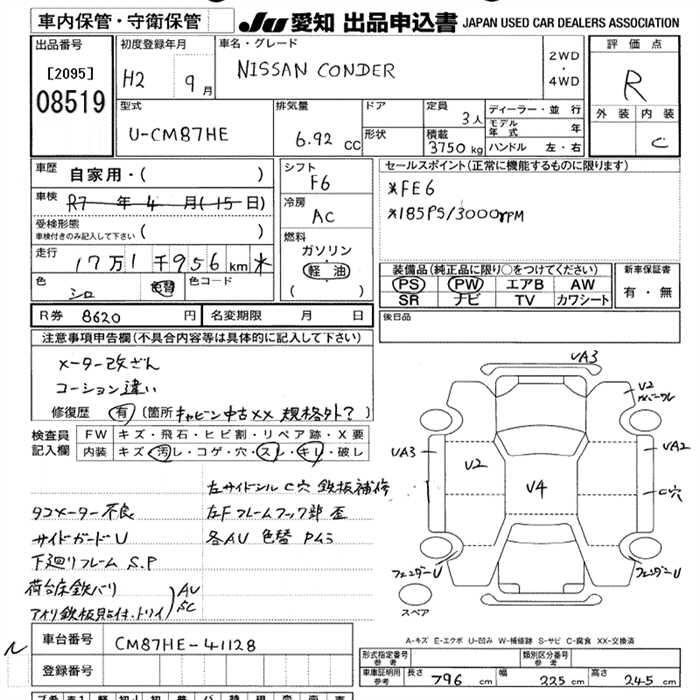 車内保管・守衛保管 JU 愛知 出品申込書 JAPAN USED CAR DEALERS ASSOCIATION
出品番号 [2095] 08519
初度登録年月 H2 9月
車名・グレード NISSAN CONDER
2WD・4WD
評価点 R
外装 内装 C
型式 U-CM87HE
排気量 6.92 CC
ドア
形状
定員 3人
積載 3750 kg
ディーラー・並行
モデル年式 年
ハンドル 左・右
車歴 自家用・( )
車検 R7 年 4 月(15日)
受検形態 車検付きのみ記入して下さい ( )
走行 17万1千956km
色 シロ 色替 色コード
シフト F6
冷房 AC
燃料 ガソリン・軽油 ( )
セールスポイント(正常に機能するものに限ります)
*FE6
*185PS/3000rpm
装備品(純正品に限り○をつけてください)
PS PW エアB AW
SR ナビ TV カワシート
新車保証書 有・無
R券 8620 円 名変期限 月 日
後日品
注意事項申告欄(不具合内容等は具体的に記入して下さい)
メーター改ざん
コーション違い
修復歴 有 (箇所 キャビン中古XX 規格外?)
検査員記入欄
FW キズ・飛石・ヒビ割・リペア跡・X要
内装 キズ・汚し・コゲ・穴・スレ・キレ・破し
左サイドシル C穴 鉄板補修
タコメーター不良 左Fフレームフック部 歪
サイドガードU 各AU 色替 Pムラ
下廻りフレーム S.P
荷台床鉄バリ
アオリ鉄板貼付.トリイ AU SC
VA3
V2
UA3
V2
V4
UA2
C穴
フェンダーU
フェンダーU
スペア
A-キズ E-エクボ U-凹み W-補修跡 S-サビ C-腐食 XX-交換済
車台番号 CM87HE-41128
登録番号
形式指定番号 参考
類別区分番号 参考
車庫証明用 参考 長さ 796 cm 幅 225 cm 高さ 245 cm